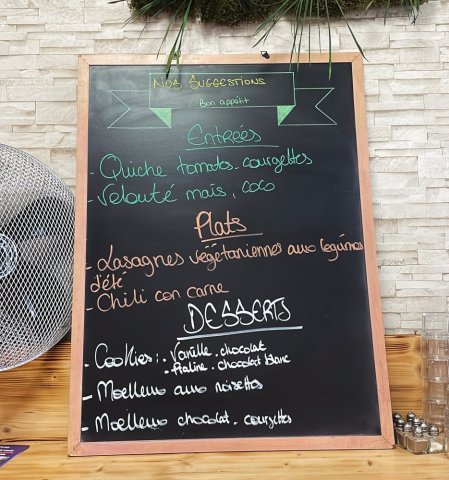 Nos Suggestions
Bon appétit
Entrées
- Quiche tomates-courgettes
- Velouté maïs, coco
Plats
- Lasagnes végétariennes aux légumes
d'été
- Chili con carne
DESSERTS
- Cookies: • Vanille-chocolat
• Praline-chocolat blanc
- Moelleux aux noisettes
- Moelleux chocolat-courgettes